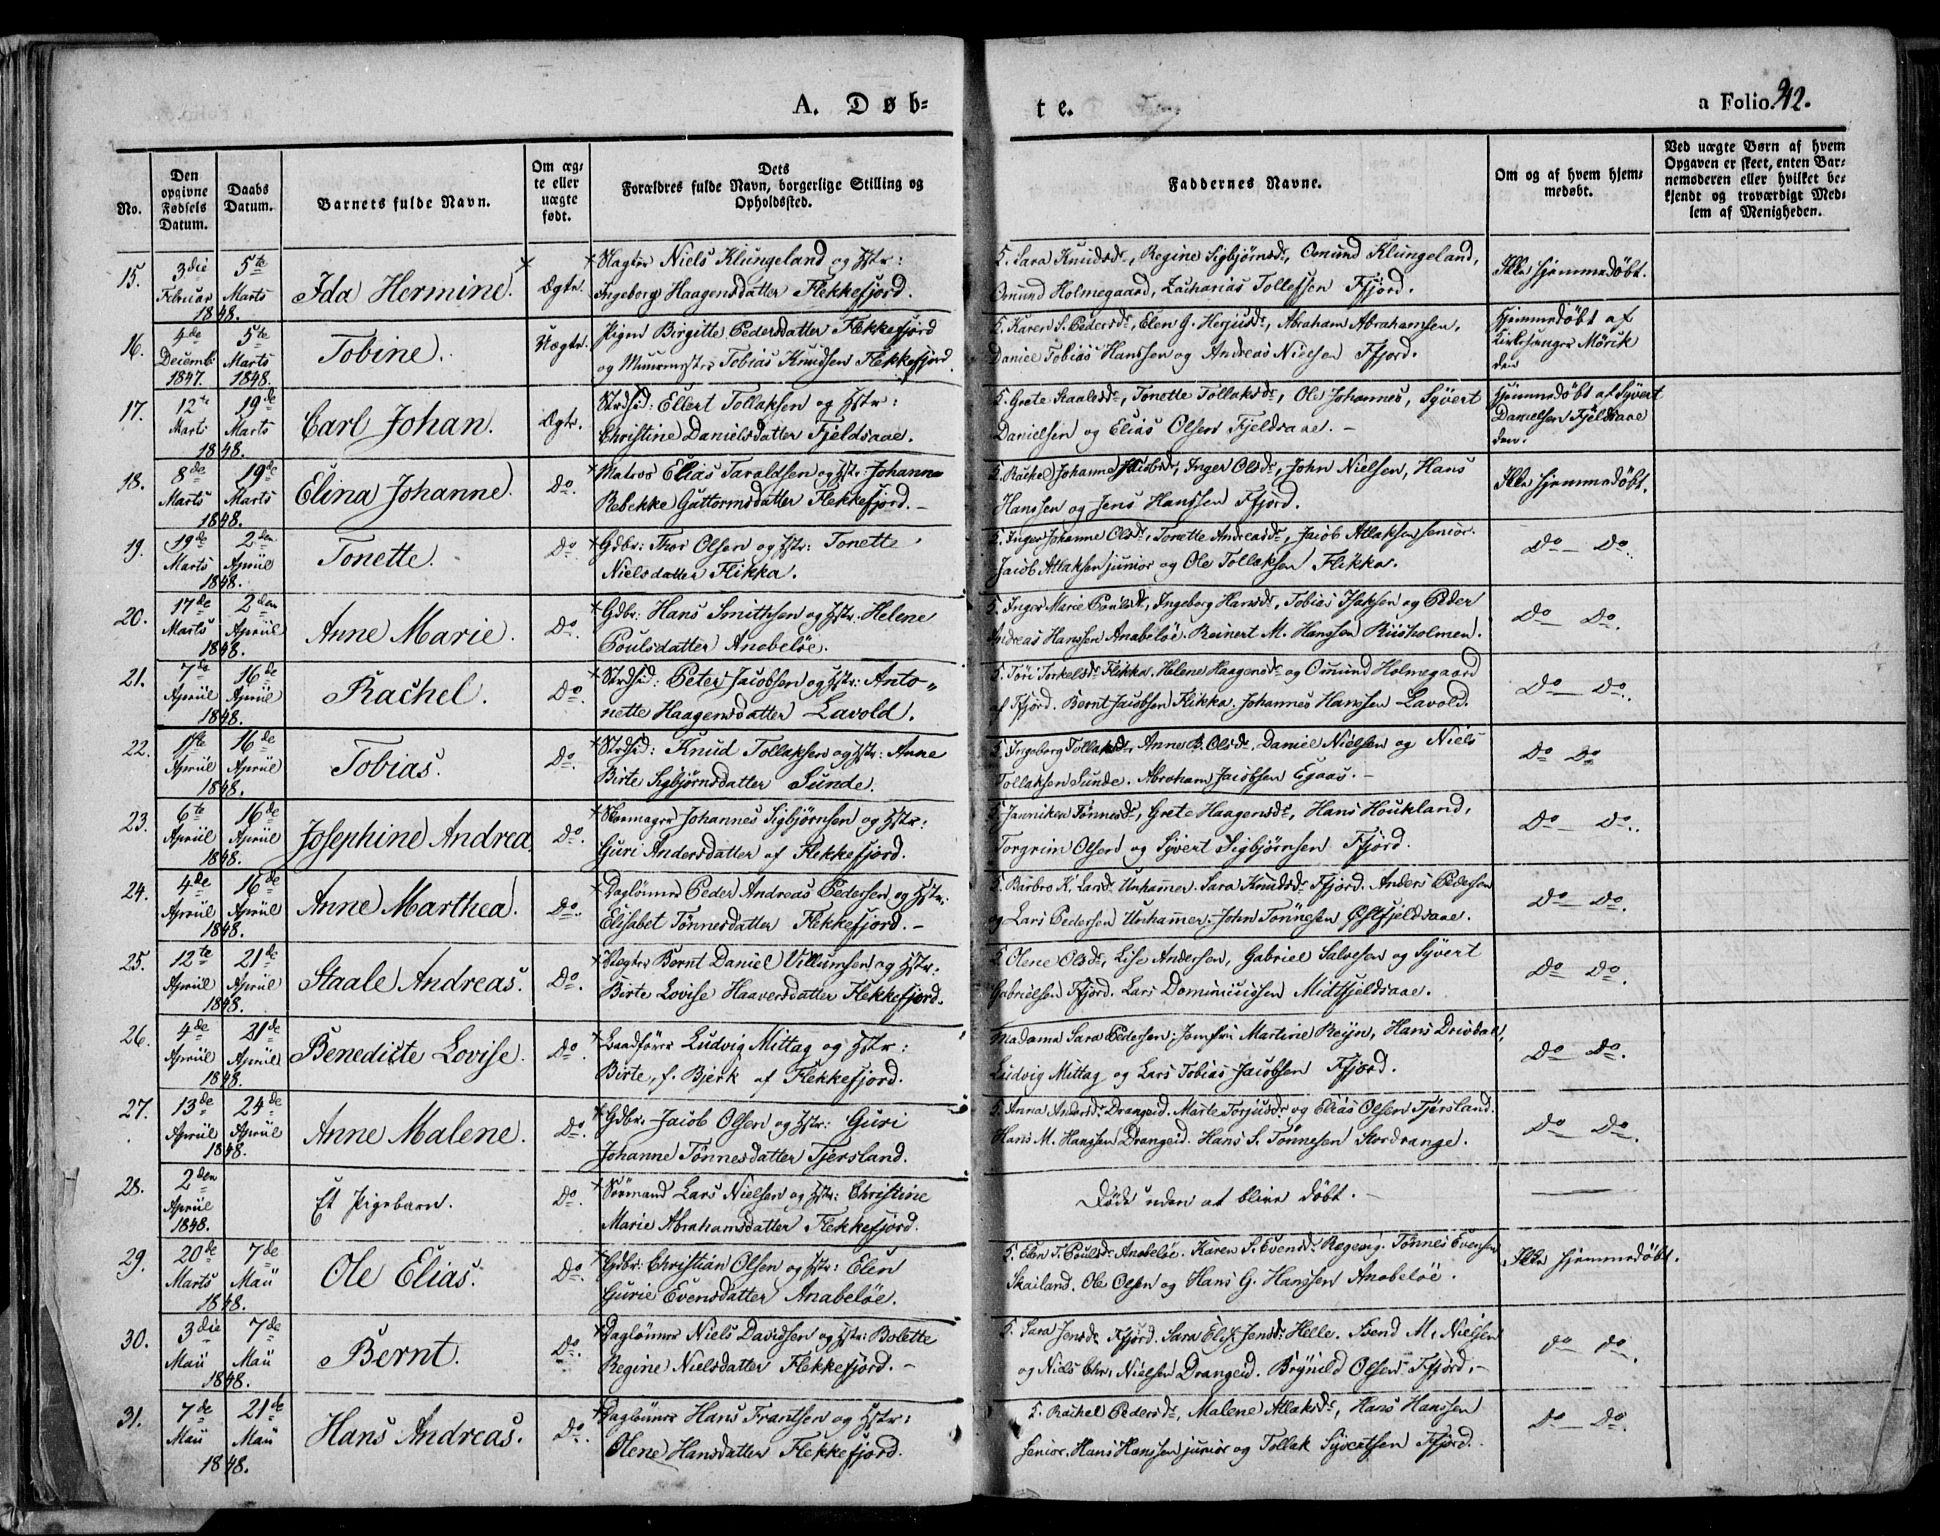 A. Døb-
te.
a Folio 242.
No.
Den opgivne Fødsels Datum.
Daabs Datum.
Barnets fulde Navn.
Om ægte eller uægte født.
Dets Forældres fulde Navn, borgerlige Stilling og Opholdssted.
Faddernes Navne.
Om og af hvem hjemmedøbt.
Ved uægte Børn af hvem Opgaven er skeet, enten Barnemoderen eller hvilket bekjendt og troværdigt Medlem af Menigheden.
15. 3die Februar 5te Marts 1848. Ida Hermine. Ægte.
Slagter Niels Klungeland og Hstr:
Ingeborg Haagensdatter Flekkefjord.
5. Sara Knudsdr, Regine Sigbjørnsdr, Omund Klungeland,
Omund Holmegaard, Zacharias Tollefsen Ffjord.
Ikke hjemmedøbt.
16. 4de Decemb: 1847. 5te Marts 1848. Tobine. Uægte.
Pigen Birgitte Pedersdatter Flekkefjord
og Muurmester Tobias Knudsen Flekkefjord.
5. Karen S. Pedersdr, Elen G. Herjusdr, Abraham Abrahamsen,
Daniel Tobias Hanssen og Andreas Nielsen Ffjord.
Hjemmedøbt af
Kirkesanger Mörik
den
17. 12te Marts 19de Marts 1848. Carl Johan. Ægte.
Strdsid: Ellert Tollaksen og Hstr:
Christine Danielsdatter Fjeldsaae.
5. Grete Staalesdr, Tonette Tollaksdr, Ole Johannes, Syvert
Danielsen og Elias Olsen Fjeldsaae. –
Hjemmedøbt af Syvert
Danielsen Fjeldsaae
den.
18. 8de Marts 19de Marts 1848. Elina Johanne. Do.
Matros Elias Taraldsen og Hstr: Johanne
Rebekke Guttormsdatter Flekkefjord. –
5. Rachel Johanne Jacobsdr, Inger Olsdr, John Nielsen, Hans
Hanssen og Jens Hanssen Ffjord.
Ikke hjemmedøbt.
19. 19de Marts 2den Apriil 1848. Tonette. Do
Gdbr: Thor Olsen og Hstr: Tonette
Nielsdatter Flikka.
5. Inger Johanne Olsdr, Tonette Andreasdr, Jacob Atlaksen senior.
Jacob Atlaksen junior og Ole Tollaksen Flikka.
Do – Do.
20. 17de Marts 2den Apriil 1848. Anne Marie. Do.
Gdbr: Hans Smithsen og Hstr: Helene
Poulsdatter Anabeløe.
5. Inger Marie Poulsdr, Ingeborg Hansdr, Tobias Isaksen og Peder
Andreas Hanssen Anabeløe. Reinert M. Hanssen Riisholmen.
Do – Do.
21. 7de Apriil 16de Apriil 1848. Rachel. Do
Strdsid: Peter Jacobsen og Hstr: Anto„
nette Haagensdatter Lavold.
5. Töri Torkelsdr Flikka. Helene Haagensdr og Omund Holmegaard
af Ffjord. Bernt Jacobsen Flikka. Johannes Hanssen Lavold.
Do – Do.
22. 1ste Apriil 16de Apriil 1848. Tobias. Do.
Strdsid: Knud Tollaksen og Hstr: Anne
Birte Sigbjørnsdatter Sunde.
5. Ingeborg Tollaksdr, Anne B. Olsdr, Daniel Nielsen og Niels
Tollaksen Sunde. Abraham Jacobsen Egaas. –
Do Do
23. 6te Apriil 16de Apriil 1848. Josephine Andrea. Do.
Skomager Johannes Sigbjørnsen og Hstr:
Guri Andersdatter af Flekkefjord.
5. Janniken Tønnesdr, Grete Haagensdr, Hans Houkland,
Torgrim Olsen og Syvert Sigbjørnsen Ffjord.
Do – Do.
24. 4de Apriil 16de Apriil 1848. Anne Marthea. Do.
Daglönner Peder Andreas Pedersen og Hstr:
Elisabet Tønnesdatter Flekkefjord. –
5. Barbro K. Larsdr Unhammer. Sara Knudsdr Ffjord. Anders Pedersen
og Lars Pedersen Unhammer. John Tønnesen Østfjeldsaae.
Do – Do.
25. 12te Apriil 21de Apriil 1848. Staale Andreas. Do.
Slagter Bernt Daniel Villumsen og Hstr:
Birte Lovise Haaversdatter Flekkefjord.
5. Olene Olsdr, Lise Andersen, Gabriel Salvesen og Syvert
Gabrielsen Ffjord. Lars Dominicussen Midtfjeldsaae.
Do Do.
26. 4de Apriil 21de Apriil 1848. Benedicte Lovise. Do.
Baadfører Ludvig Mittag og Hstr:
Birte, f. Bjerk af Flekkefjord.
Madame Sara Pedersen, Jomfru Martine Beijn, Hans Drivdal,
Ludvig Mittag og Lars Tobias Jacobsen Ffjord.
Do – Do.
27. 13de Apriil 24de Apriil 1848. Anne Malene. Do.
Gdbr: Jacob Olsen og Hstr: Guri
Johanne Tønnesdatter Tjersland.
5. Anna Andersdr Drangeid. Marte Torjusdr og Elias Olsen Tjersland.
Hans M. Hanssen Drangeid. Hans S. Tønnesen Stordrange.
Do – Do.
28. 2den Apriil 1848. Et Pigebarn. Do.
Sømand Lars Nielsen og Hstr: Christine
Marie Abrahamsdatter Flekkefjord.
Døde uden at blive døbt. –
29. 20de Marts 7de Mai 1848. Ole Elias. Do.
Gdbr: Christian Olsen og Hstr: Elen
Gurie Evensdatter Anabeløe.
5. Elen T. Poulsdr Anabeløe. Karen S. Evensdr Rægevig. Tønnes Evensen
Skailand. Ole Olsen og Hans G. Hanssen Anabeløe.
Ikke hjemmedøbt.
30. 3die Mai 7de Mai 1848. Bernt. Do.
Daglönner Niels Davidsen og Hstr: Bolette
Regine Nielsdatter Flekkefjord. –
5. Sara Jensdr Ffjord. Sara Elis. Jensdr Helle. Svend M. Nielsen
og Niels Chr. Nielsen Drangeid. Brynild Olsen Ffjord. –
do do.
31. 7de Mai 21de Mai 1848. Hans Andreas. Do.
Daglönner Hans Frantsen og Hstr:
Olene Hansdatter Flekkefjord.
5. Rachel Pedersdr, Malene Atlaksdr, Hans Hanssen
senior. Hans Hanssen junior og Tollak Syvertsen Ffjord.
Do – Do.